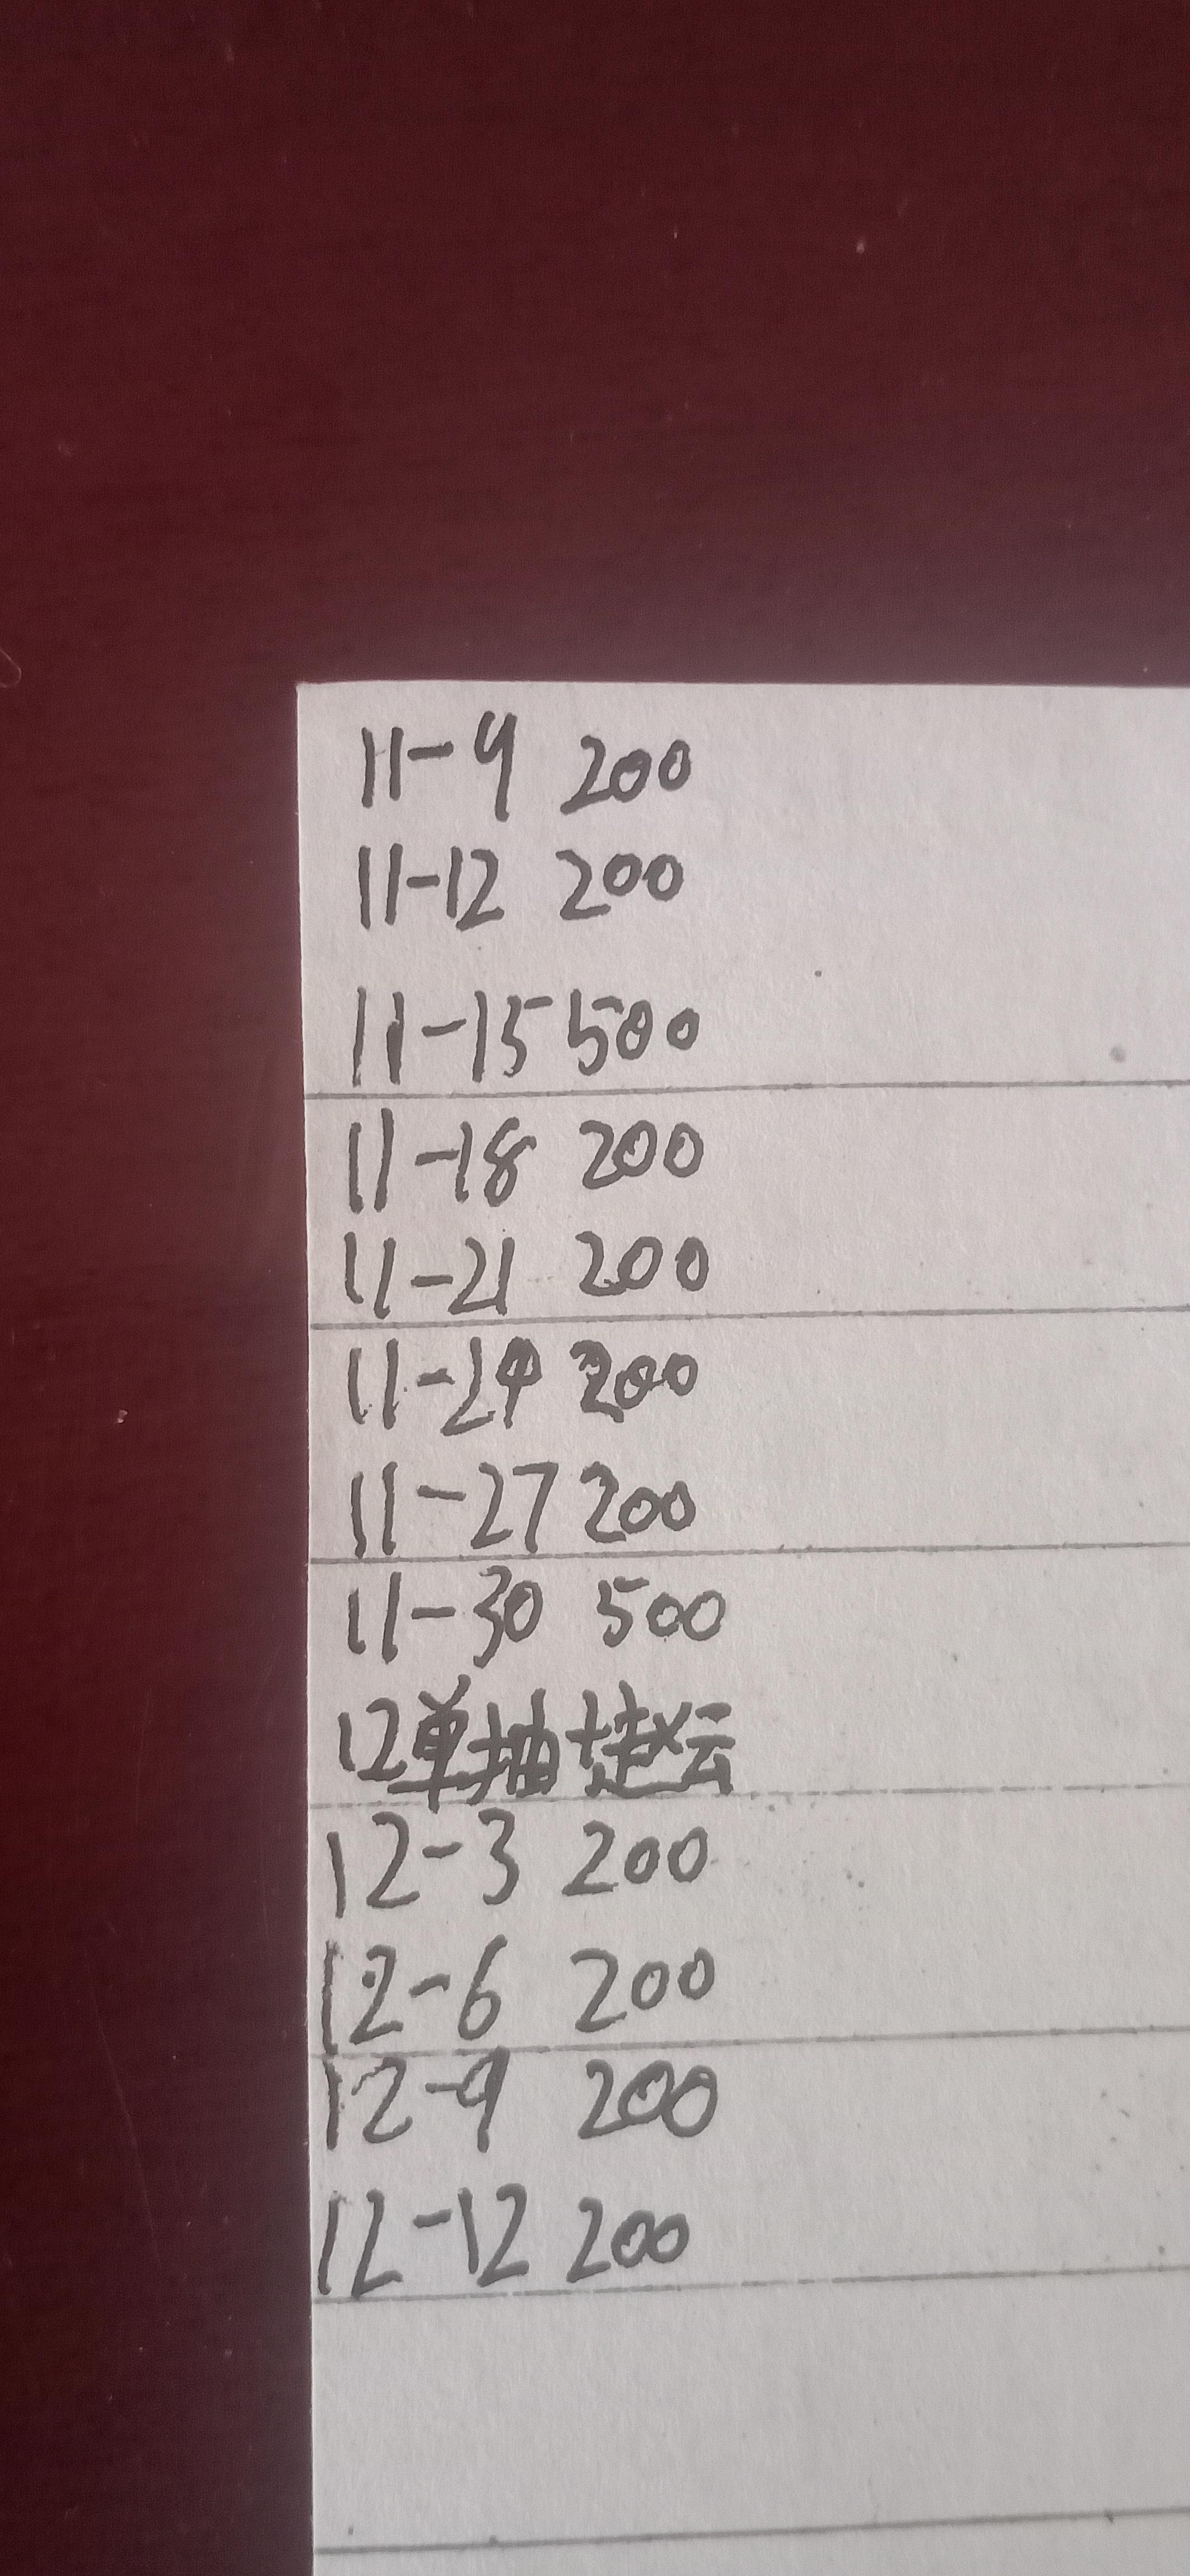 11-9 200
11-12 200
11-15 500
11-18 200
11-21 200
11-24 200
11-27 200
11-30 500
12单抽赵云
12-3 200
12-6 200
12-9 200
12-12 200